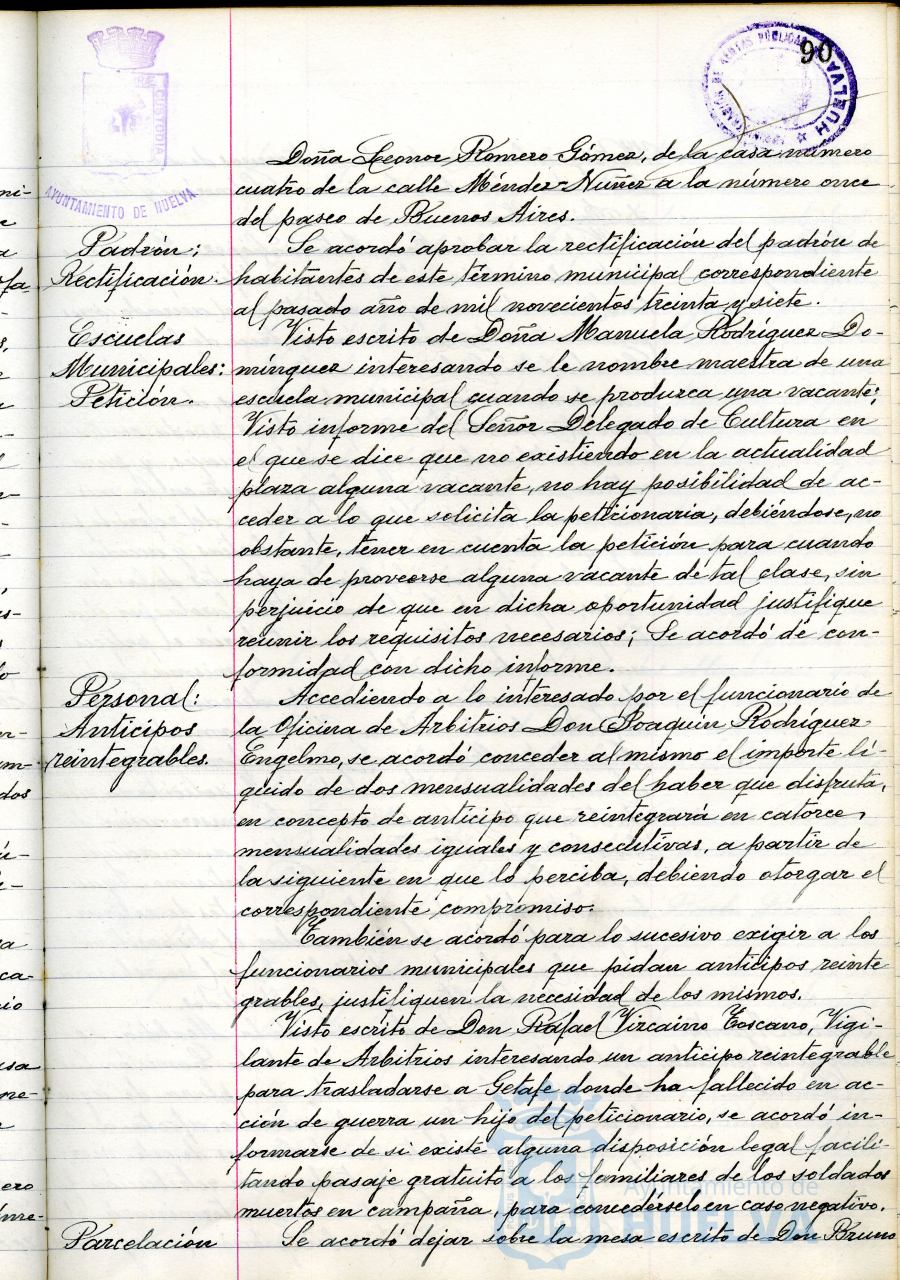 90
HUELVA
CUSTODIA
AYUNTAMIENTO DE HUELVA
Doña Leonor Romero Gómez, de la casa número
cuatro de la calle Méndez-Nuñez a la número once
del paseo de Buenos Aires.
Padrón:
Rectificación.
Se acordó aprobar la rectificación del padrón de
habitantes de este término municipal correspondiente
al pasado año de mil novecientos treinta y siete.
Escuelas
Municipales:
Petición.
Visto escrito de Doña Manuela Rodríguez Do-
mínguez interesando se le nombre maestra de una
escuela municipal cuando se produzca una vacante;
Visto informe del Señor Delegado de Cultura en
el que se dice que no existiendo en la actualidad
plaza alguna vacante, no hay posibilidad de ac-
ceder a lo que solicita la peticionaria, debiéndose, no
obstante, tener en cuenta la petición para cuando
haya de proveerse alguna vacante de tal clase, sin
perjuicio de que en dicha oportunidad justifique
reunir los requisitos necesarios; Se acordó de con-
formidad con dicho informe.
Personal:
Anticipos
reintegrables.
Accediendo a lo interesado por el funcionario de
la Oficina de Arbitrios Don Joaquin Rodríguez
Engelmo, se acordó conceder al mismo el importe lí-
quido de dos mensualidades del haber que disfruta,
en concepto de anticipo que reintegrará en catorce
mensualidades iguales y consecutivas, a partir de
la siguiente en que lo perciba, debiendo otorgar el
correspondiente compromiso.
También se acordó para lo sucesivo exigir a los
funcionarios municipales que pidan anticipos reinte
grables, justifiquen la necesidad de los mismos.
Visto escrito de Don Rafael Vizcaino Toscano, Vigi-
lante de Arbitrios interesando un anticipo reintegrable
para trasladarse a Getafe donde ha fallecido en ac-
ción de guerra un hijo del peticionario, se acordó in-
formarse de si existe alguna disposición legal facili-
tando pasaje gratuito a los familiares de los soldados
muertos en campaña, para concedérselo en caso negativo.
Parcelación
Se acordó dejar sobre la mesa escrito de Don Bruno
Ayuntamiento de
HUELVA